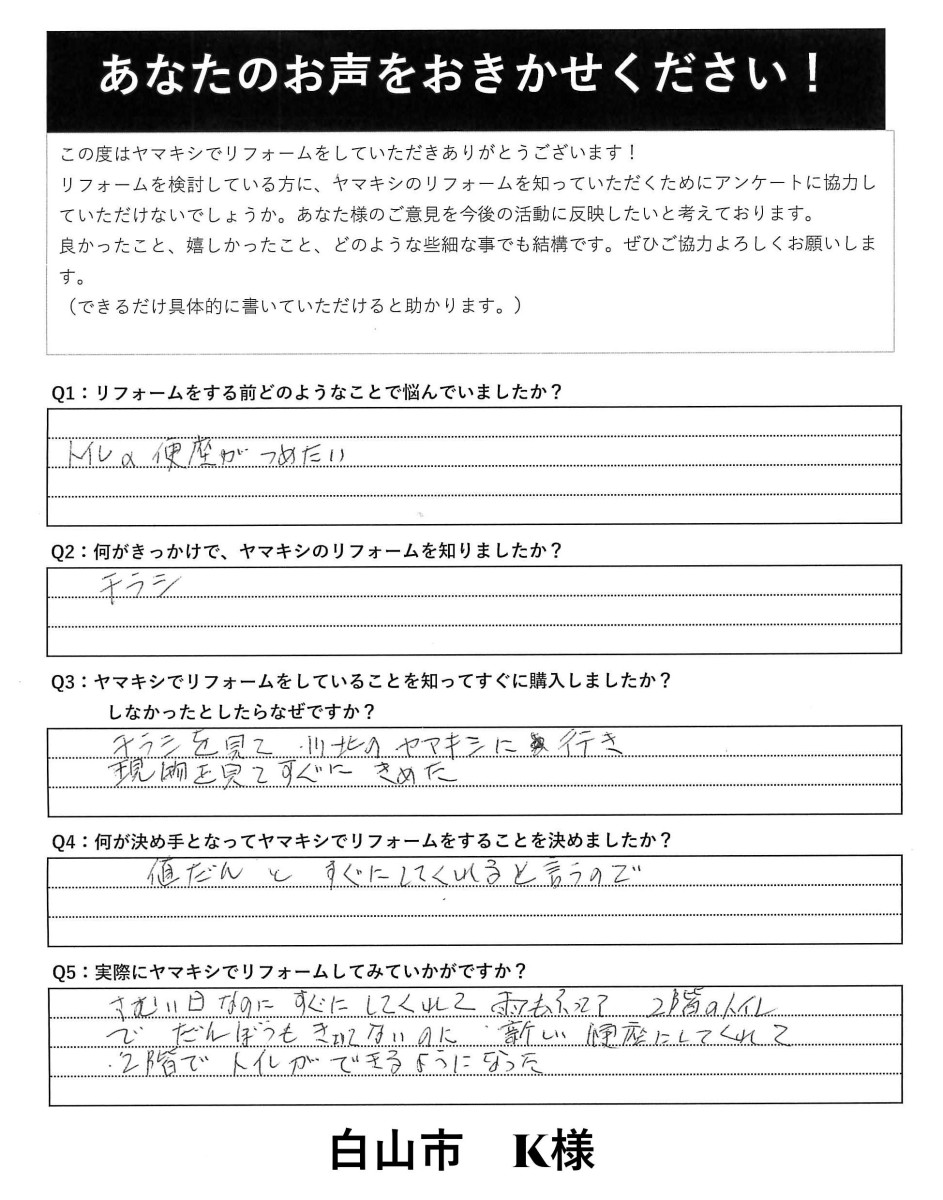 あなたのお声をおきかせください！
この度はヤマキシでリフォームをしていただきありがとうございます！
リフォームを検討している方に、ヤマキシのリフォームを知っていただくためにアンケートに協力し
ていただけないでしょうか。あなた様のご意見を今後の活動に反映したいと考えております。
良かったこと、嬉しかったこと、どのような些細な事でも結構です。ぜひご協力よろしくお願いしま
す。
（できるだけ具体的に書いていただけると助かります。）
Q1：リフォームをする前どのようなことで悩んでいましたか？
トイレの便座がつめたい
Q2：何がきっかけで、ヤマキシのリフォームを知りましたか？
チラシ
Q3：ヤマキシでリフォームをしていることを知ってすぐに購入しましたか？
しなかったとしたらなぜですか？
チラシを見て川北のヤマキシに行き
現物を見てすぐにきめた
Q4：何が決め手となってヤマキシでリフォームをすることを決めましたか？
値だんとすぐにしてくれると言うので
Q5：実際にヤマキシでリフォームしてみていかがですか？
さむい日なのにすぐにしてくれて雨もふってて2階のトイレ
でだんぼうもきいてないのに新しい便座にしてくれて
2階でトイレができるようになった
白山市 K様